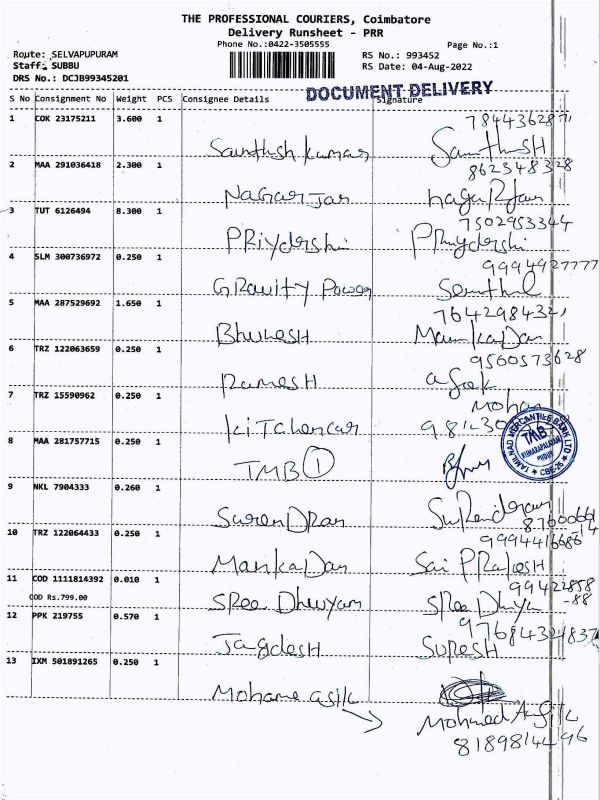 THE PROFESSIONAL COURIERS, Coimbatore
Delivery Runsheet - PRR
Phone No.:0422-3505555
Page No.:1
Route: SELVAPUPURAM
Staff: SUBBU
DRS No.: DCJB99345201
RS No.: 993452
RS Date: 04-Aug-2022
DOCUMENT DELIVERY
S No Consignment No Weight PCS Consignee Details Signature
1 COK 23175211 3.600 1
2 MAA 291036418 2.300 1
NAGARJAN
3 TUT 6126494 8.300 1
PRiydershi 7502953344
4 SLM 300736972 0.250 1
GRavity Power 9994927777
5 MAA 287529692 1.650 1
BhuvesH
6 TRZ 122063659 0.250 1
RamesH 9500573628
7 TRZ 15590962 0.250 1
Mohan
8 MAA 281757715 0.250 1
TMB 1
TAMILNAD MERCANTILE BANK LTD
TMB
CBE-26
9 NKL 7904333 0.260 1
SurenDRan
10 TRZ 122064433 0.250 1
ManikaDan Sai PRakesH
11 COD 1111814392 0.010 1
COD Rs.799.00
SRee Dhivyam SRee Dhivya
12 PPK 219755 0.570 1
JagdesH SURESH
13 IXM 501891265 0.250 1
Mohame asik
8189814496